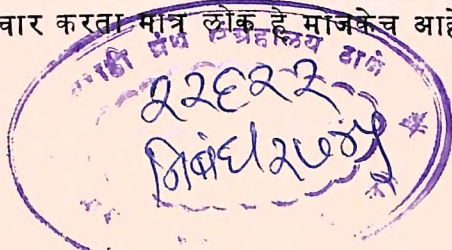 वार करता मात्र लोक हे मोजकेच आहे
मराठी ग्रंथ संग्रहालय ठाणे
२२६२२
निबंध २७४५